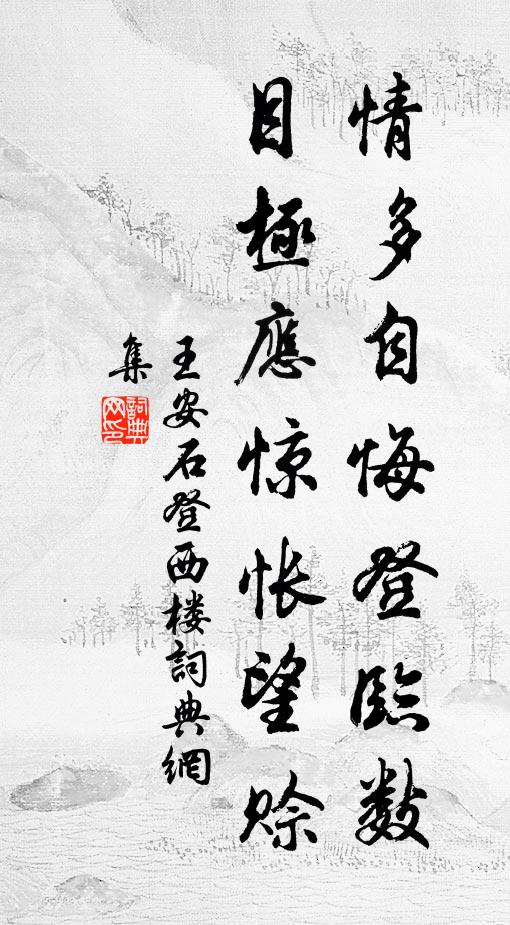 情多自悔登臨数
目極應惊怅望赊
王安石登西楼詞典網
集
詞典網印